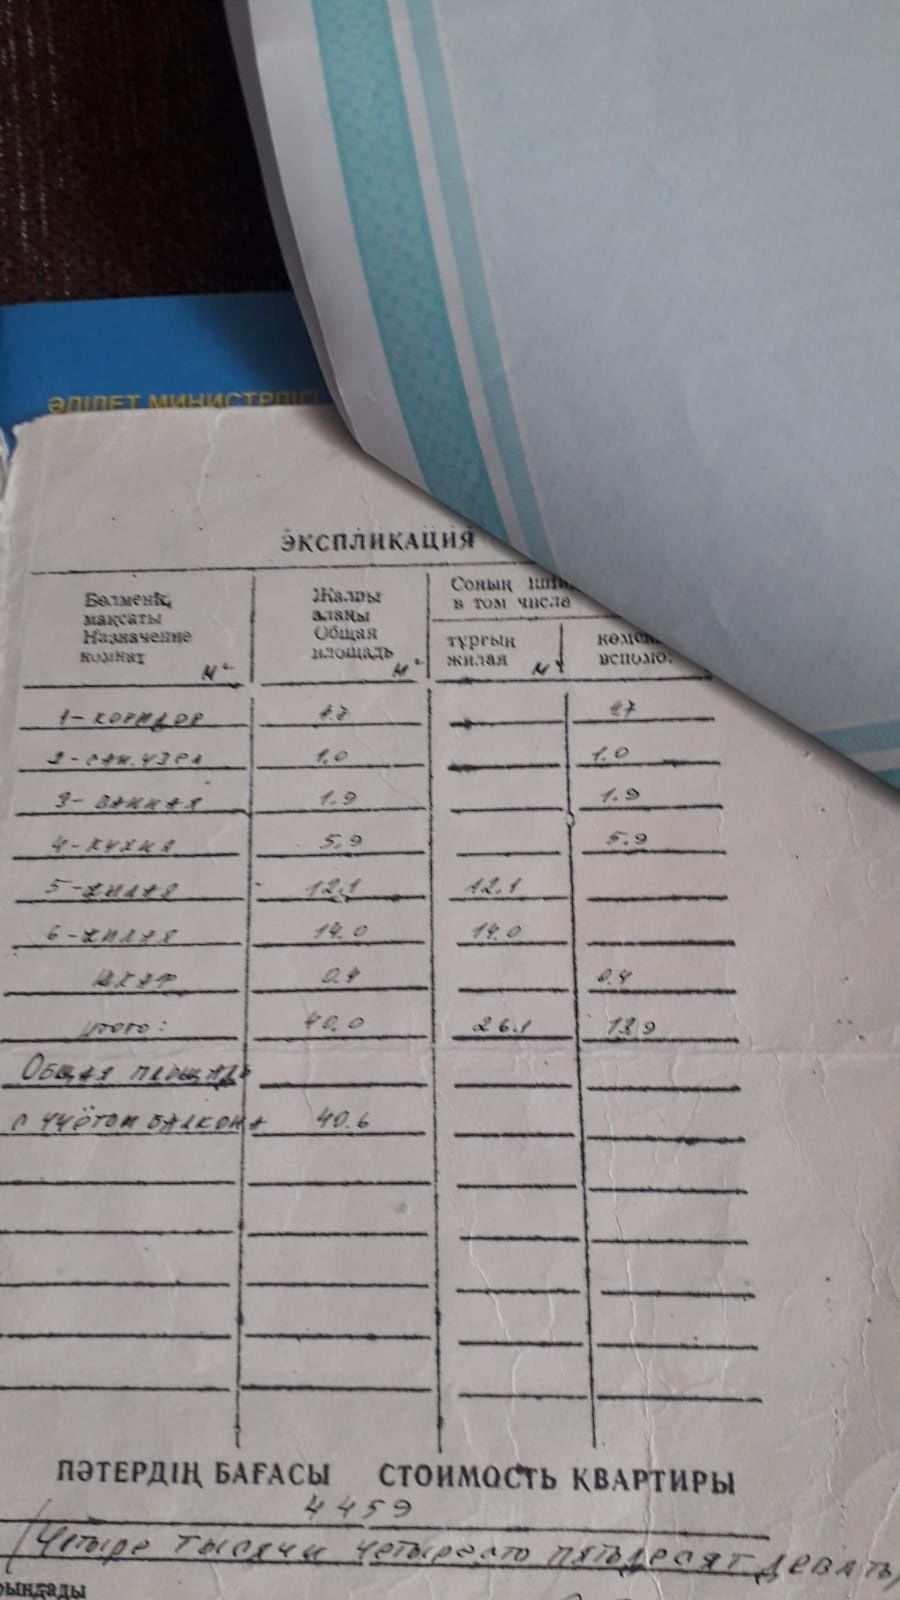 ӘДІЛЕТ МИНИСТРЛІГІ
ЭКСПЛИКАЦИЯ
Бөлменің мақсаты Назначение комнат м² Жалпы алаңы Общая площадь м² Соның ішін в том числе
тұрғын жилая м² көмек вспомо
1- коридор 4.7 4.7
2- сан. узел 1.0 1.0
3- ванная 1.9 1.9
4- кухня 5.9 5.9
5- жилая 12.1 12.1
6- жилая 14.0 14.0
шкаф 0.4 0.4
итого: 40.0 26.1 13.9
Общая площадь
с учётом балкона 40.6
ПӘТЕРДІҢ БАҒАСЫ СТОИМОСТЬ КВАРТИРЫ
4459
(Четыре тысячи четыресто пятьдесят девять
рындады